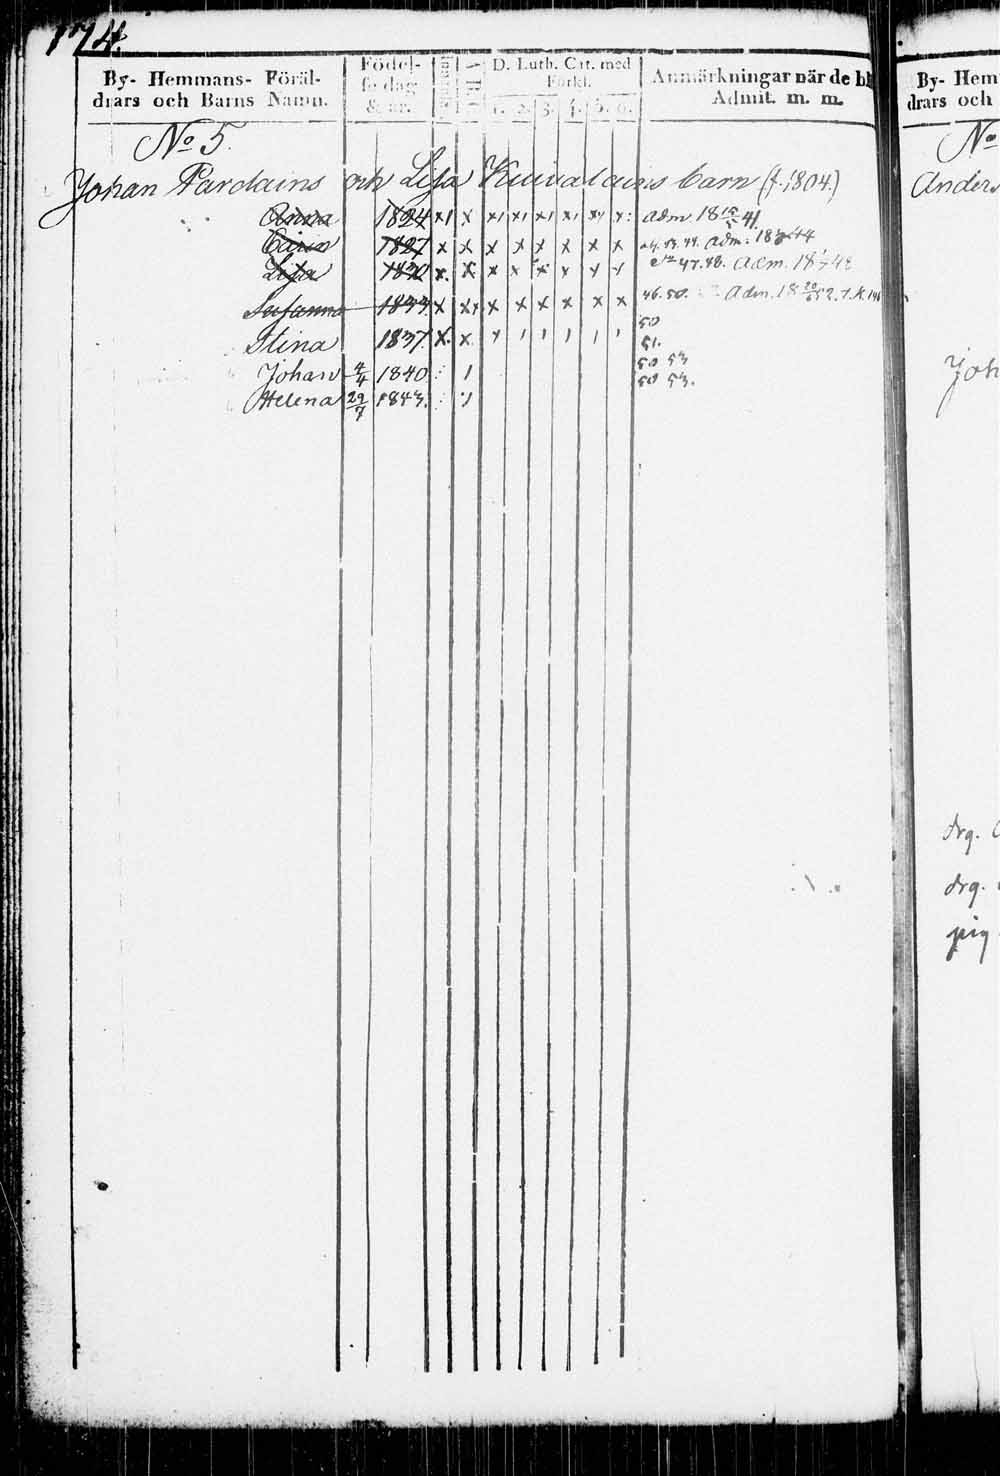 174.
By- Hemmans- Föräl-
drars och Barns Namn.
Födel-
se dag
& år.
A B C
D. Luth. Cat. med
Förkl.
1. 2. 3. 4. 5. 6.
Anmärkningar när de bl
Admit. m. m.
No 5.
Johan Pardains och Lisa Kuivalains barn (f. 1804.)
Anna 1824 x x x x x x x x adm. 18 41
Carin 1827 x x x x x x x x 44 adm: 18 44
Lisa 1830 x x x x x x x x 47.48. adm. 18 48
Susanna 1833 x x x x x x x x 46.50. adm. 18 20/6 52.
50
Stina 1837. x x 51.
50 53
Johan 4/4 1840
50 53.
Helena 29/7 1843.
By- Hem
drars och
No
Anders
Joh
drg.
drg.
pig